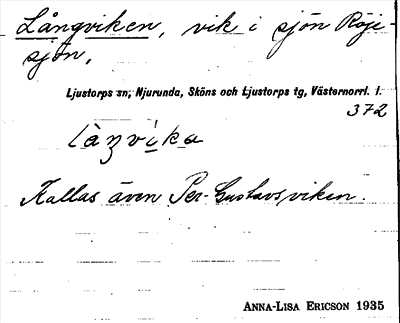 Långviken, vik i sjön Röje-
sjön.
Ljustorps sn, Njurunda, Sköns och Ljustorps tg, Västernorrl. l.
372
Kallas även Per-Gustavsviken.
ANNA-LISA ERICSON 1935